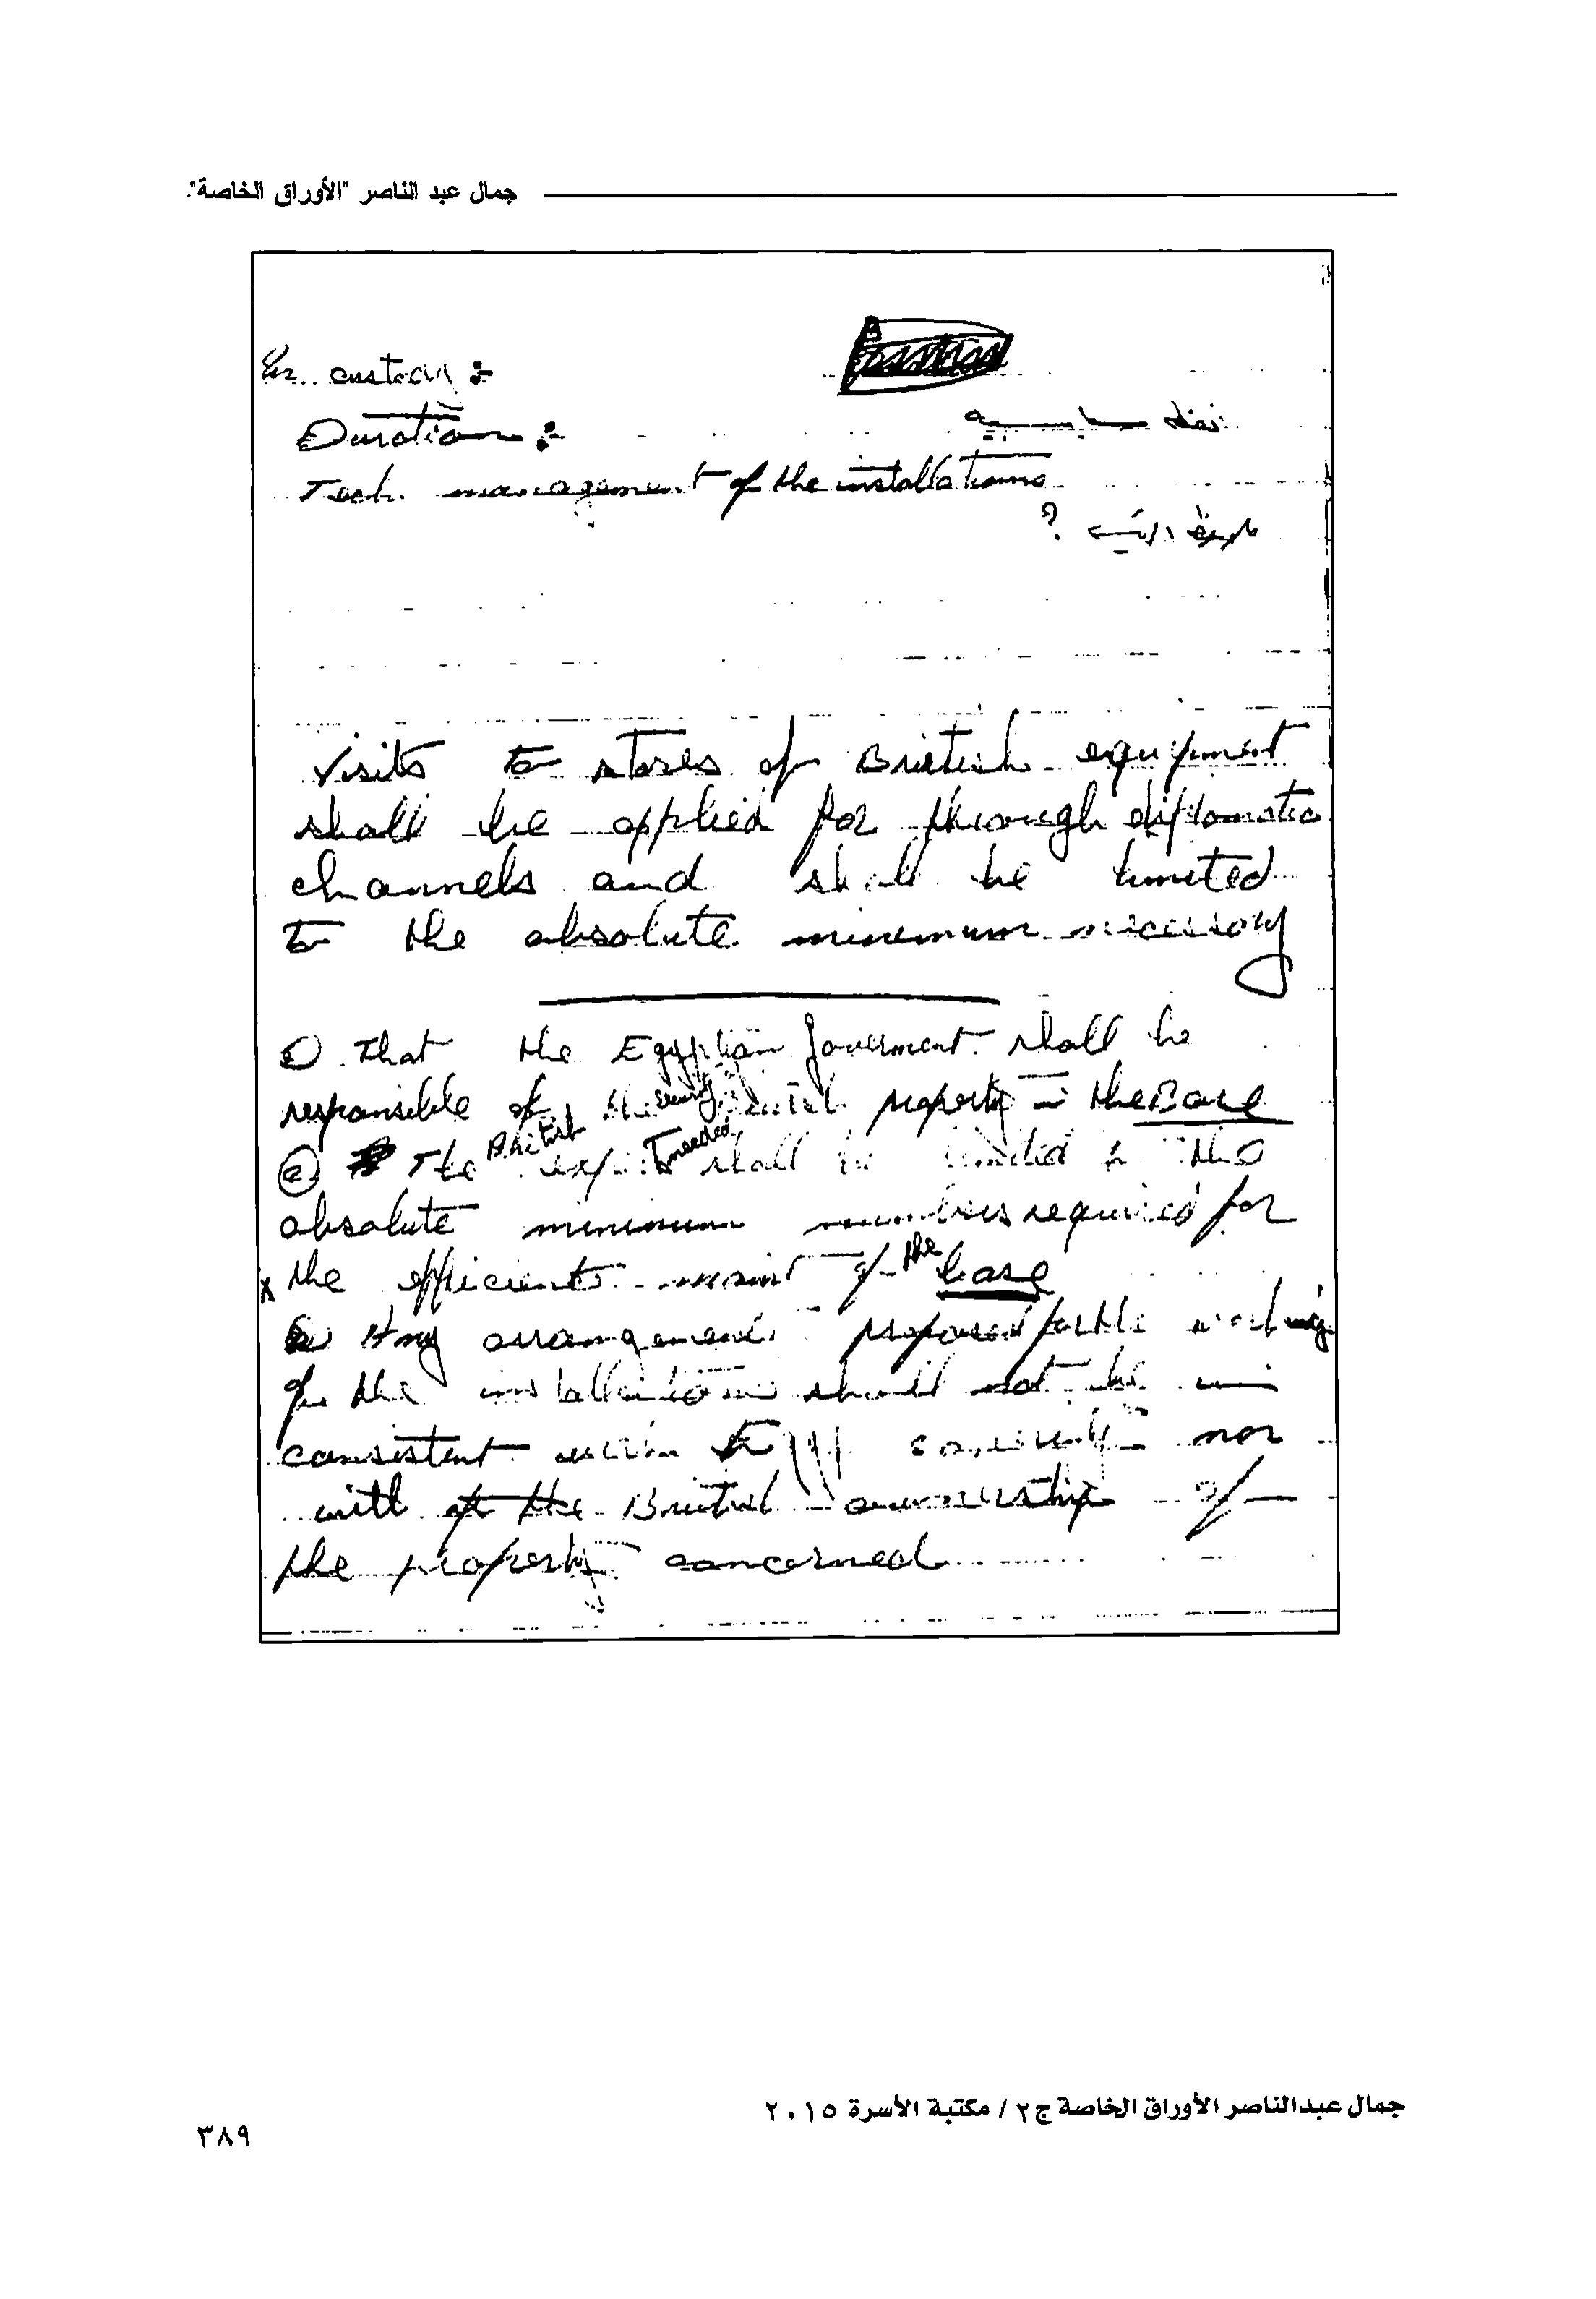 جمال عبد الناصر "الأوراق الخاصة".
custody :-
Duration :-
Tech. management of the installations
؟
Visits to stores of British equipment
shall be applied for through diplomatic
channels and shall be limited
to the absolute minimum necessary
① That the Egyptian Goverment shall be
responsible of the security British property in the Base
② The British experts needed shall be limited to the
absolute minimum numbers required for
x the efficient maint of the base
Any arrangement proposed for the working
of the installations should not be in
consistent with Egyp. nor
with of the British ownership of
the property concerned
جمال عبدالناصر الأوراق الخاصة ج٢ / مكتبة الأسرة ٢٠١٥
٣٨٩